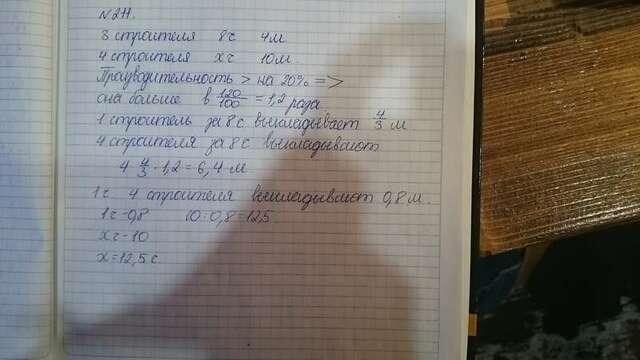 N 211.
3 строителя 8 с 4 м
4 строителя x с 10 м
Производительность > на 20% =>
она больше в 120/100 = 1,2 раза
1 строитель за 8 с выкладывает 4/3 м
4 строителя за 8 с выкладывают
4 4/3 · 1,2 = 6,4 м
1 с 4 строителя выкладывают 0,8 м.
1 с - 0,8 10 : 0,8 = 12,5
x с - 10
x = 12,5 с